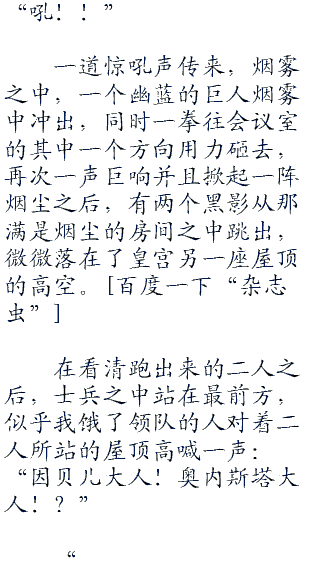 “吼！！”
一道惊吼声传来，烟雾
之中，一个幽蓝的巨人烟雾
中冲出，同时一拳往会议室
的其中一个方向用力砸去，
再次一声巨响并且掀起一阵
烟尘之后，有两个黑影从那
满是烟尘的房间之中跳出，
微微落在了皇宫另一座屋顶
的高空。[百度一下“杂志
虫”]
在看清跑出来的二人之
后，士兵之中站在最前方，
似乎我饿了领队的人对着二
人所站的屋顶高喊一声：
“因贝儿大人！奥内斯塔大
人！？”
“